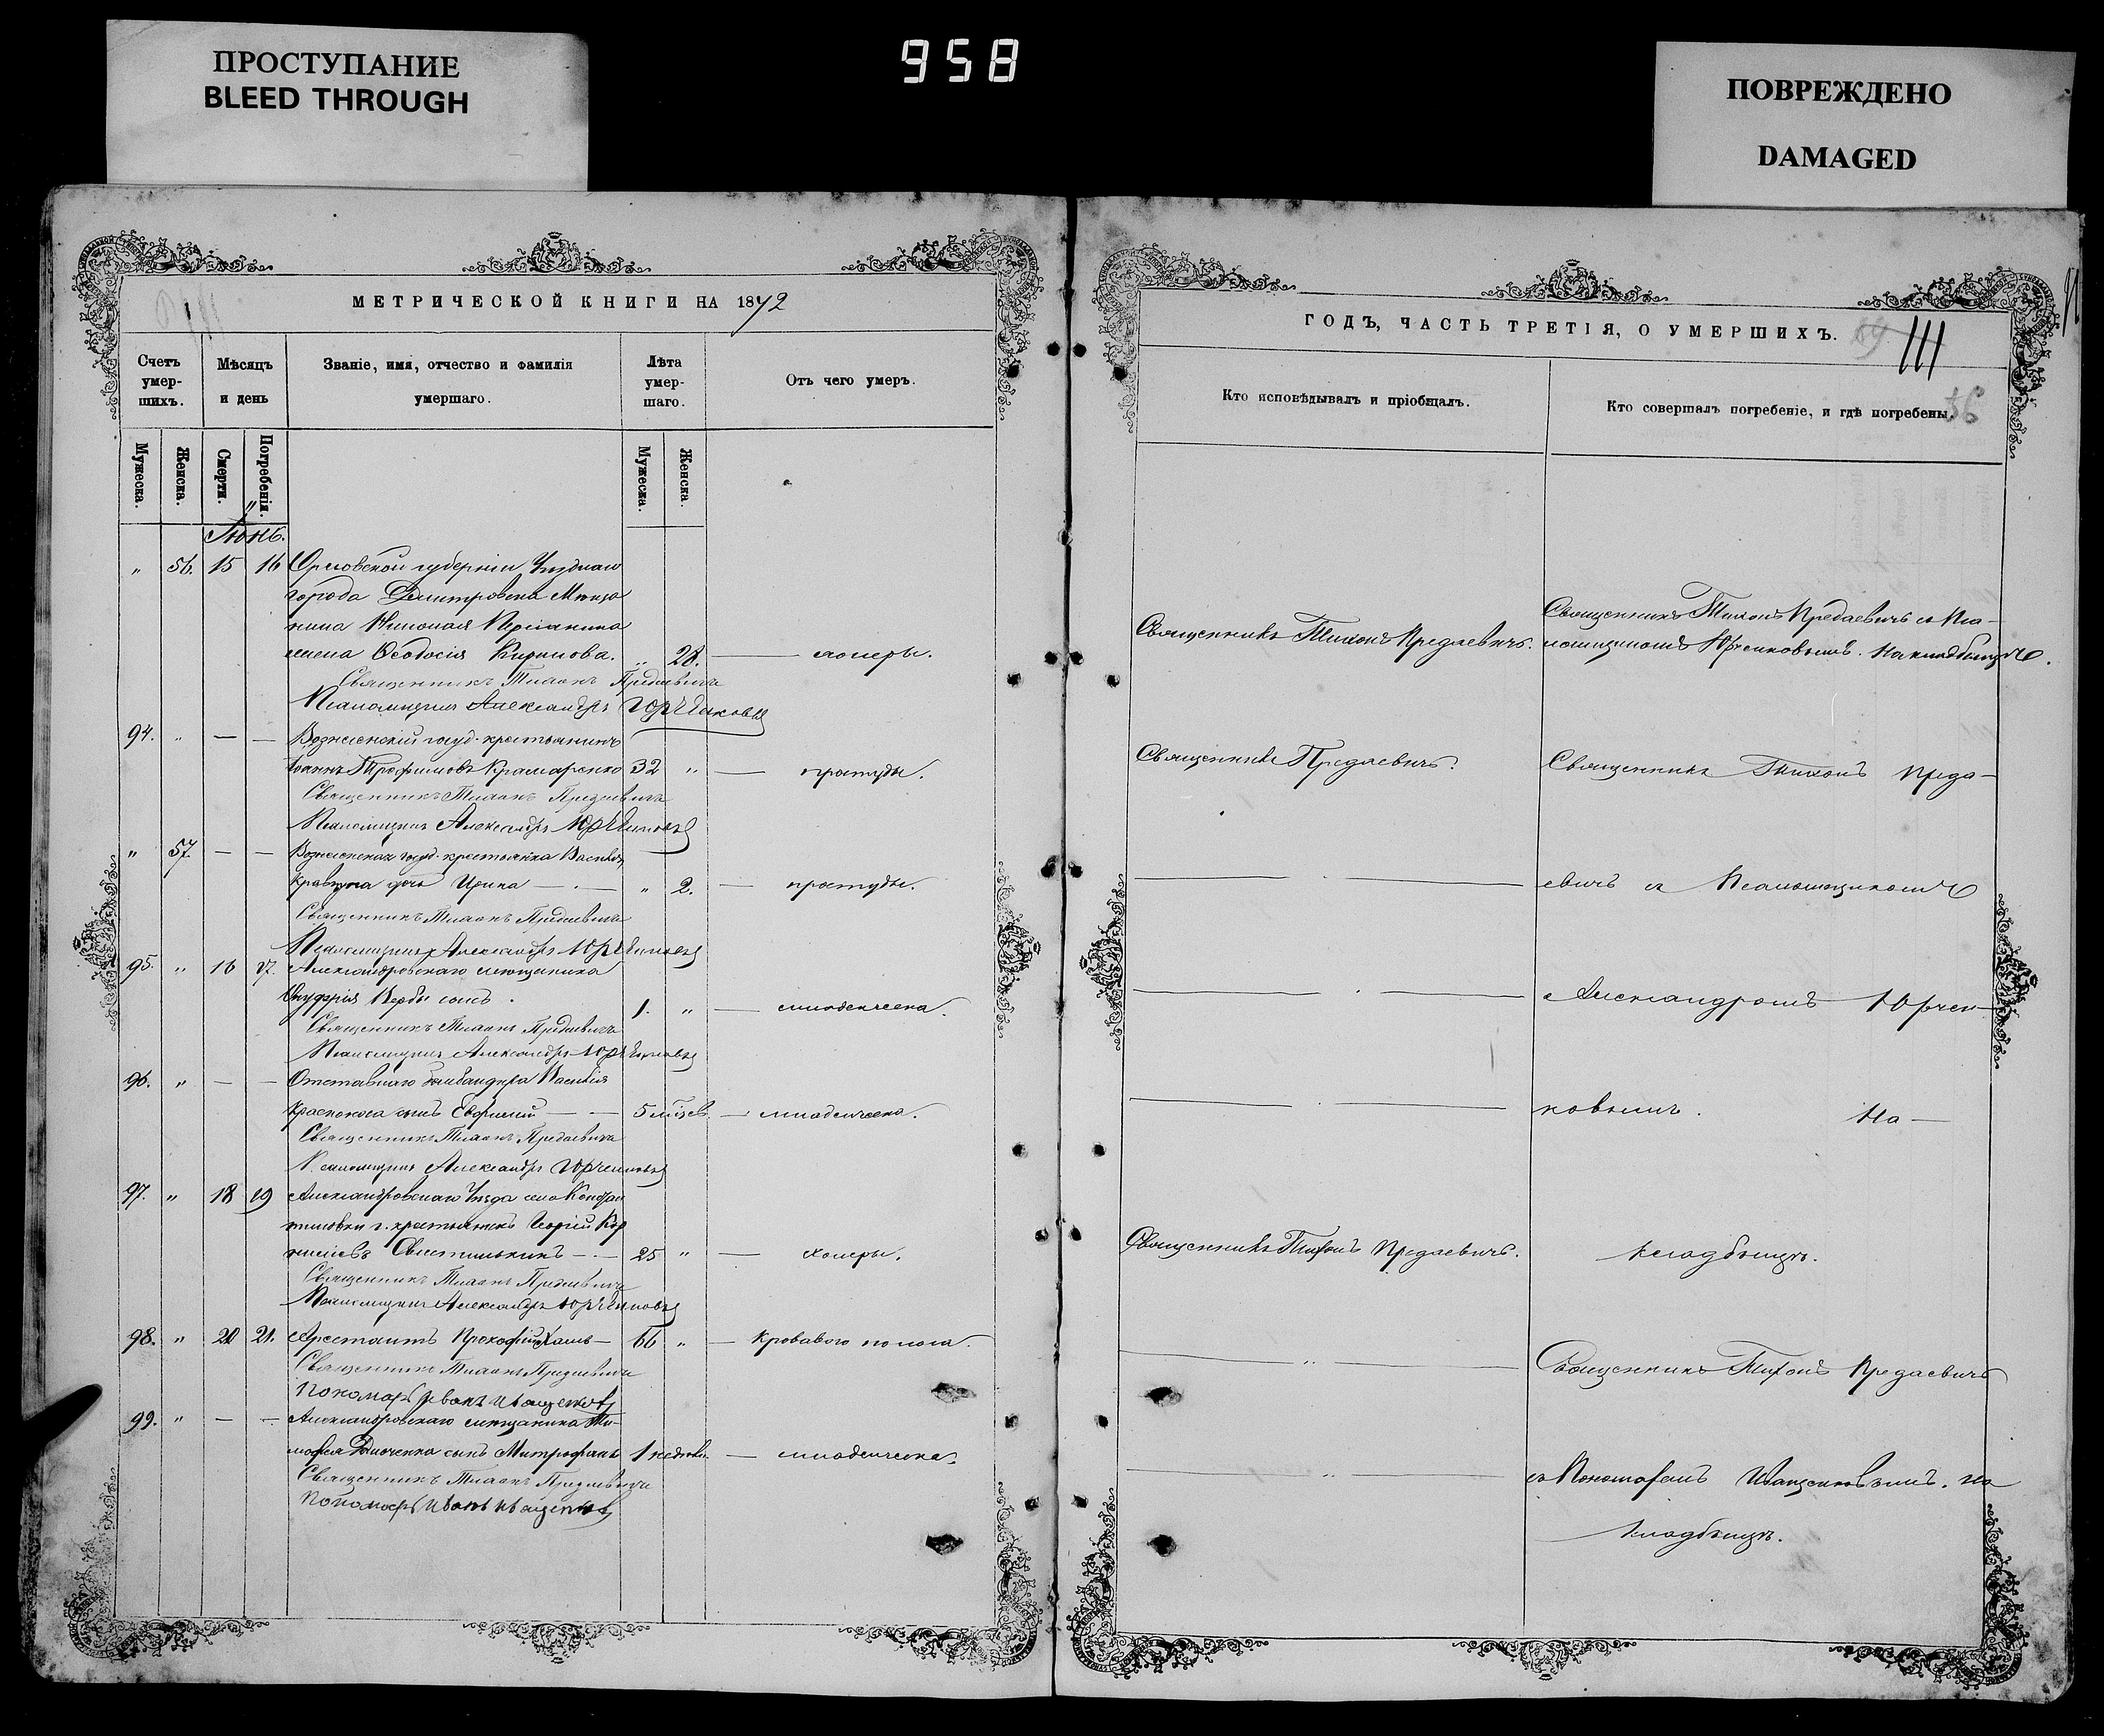 ПРОСТУПАНИЕ
BLEED THROUGH
958
ПОВРЕЖДЕНО
DAMAGED
МЕТРИЧЕСКОЙ КНИГИ НА 1872
Счетъ умер-шихъ.
Мѣсяцъ и день
Званіе, имя, отчество и фамилія умершаго.
Лѣта умер-шаго.
Отъ чего умеръ.
Мужеска.
Женска.
Смерти.
Погребенія.
Мужеска.
Женска.
Іюнь.
" 56. 15 16 Орловской губерніи Уѣзднаго
города Дмитровска Мѣща
нина Николая
жена Ѳеодосія Кирилова. " 28. — холеры.
Священникъ Тихонъ Предаевичъ
Псаломщикъ Александръ Юрченковъ
94. " — — Вознесенскій госуд. крестьянинъ
Іоаннъ Трофимовъ Крамаренко 32 " — простуды.
Священникъ Тихонъ Предаевичъ
Псаломщикъ Александръ Юрченковъ
" 57. — — Вознесенская госуд. крестьянка Василія
Кравцова дочь Ирина — " 2. — простуды.
Священникъ Тихонъ Предаевичъ
Псаломщикъ Александръ Юрченковъ
95. " 16 17. Александровскаго мѣщанина
Онуфрія Вербы сынъ. 1. " — младенческа.
Священникъ Тихонъ Предаевичъ
Псаломщикъ Александръ Юрченковъ
96. " — — Отставнаго бомбандира Василія
сынъ Евфимій — 5 мѣсяцев. — младенческа.
Священникъ Тихонъ Предаевичъ
Псаломщикъ Александръ Юрченковъ
97. " 18 19 Александровскаго Уѣзда село
г. крестьянинъ Георгій Кор
ниліевъ — 25 " — холеры.
Священникъ Тихонъ Предаевичъ
Псаломщикъ Александръ Юрченковъ
98. " 20 21. Арестантъ Прокофій — 66 " — Кроваваго поноса.
Священникъ Тихонъ Предаевичъ
Пономарь Иванъ Иващенковъ
99. " — — Александровскаго мѣщанина Ти-
мофея сынъ Митрофанъ 1 недѣли. — младенческа.
Священникъ Тихонъ Предаевичъ
Пономарь Иванъ Иващенковъ
ГОДЪ, ЧАСТЬ ТРЕТІЯ, О УМЕРШИХЪ.
111
Кто исповѣдывалъ и пріобщалъ.
Кто совершалъ погребеніе, и гдѣ погребены.
56
Священникъ Тихонъ Предаевичъ.
Священникъ Тихонъ Предаевичъ съ Пса-
ломщикомъ Юрченковымъ. На кладбищѣ.
Священникъ Предаевичъ.
Священникъ Тихонъ Преда-
евичъ съ Псаломщикомъ
Александромъ Юрчен-
ковымъ. На —
Священникъ Тихонъ Предаевичъ.
кладбищѣ.
Священникъ Тихонъ Предаевичъ
съ Пономаремъ Иващенковымъ. на
кладбищѣ.